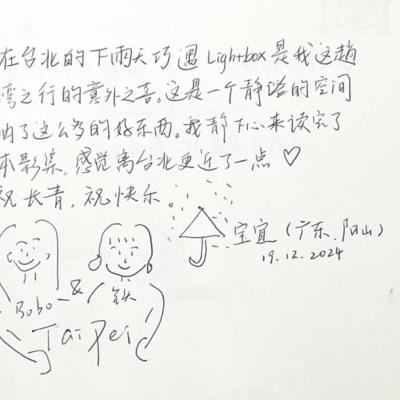 在台北的下雨天巧遇Lightbox是我这趟
湾之行的意外之喜。这是一个静谧的空间
纳了这么多的好东西。我静下心来读完了
本影集,感觉离台北更近了一点♡
祝长青,祝快乐。
宝宜(广东.阳山)
19.12.2024
Bobo & 铁
TaiPei